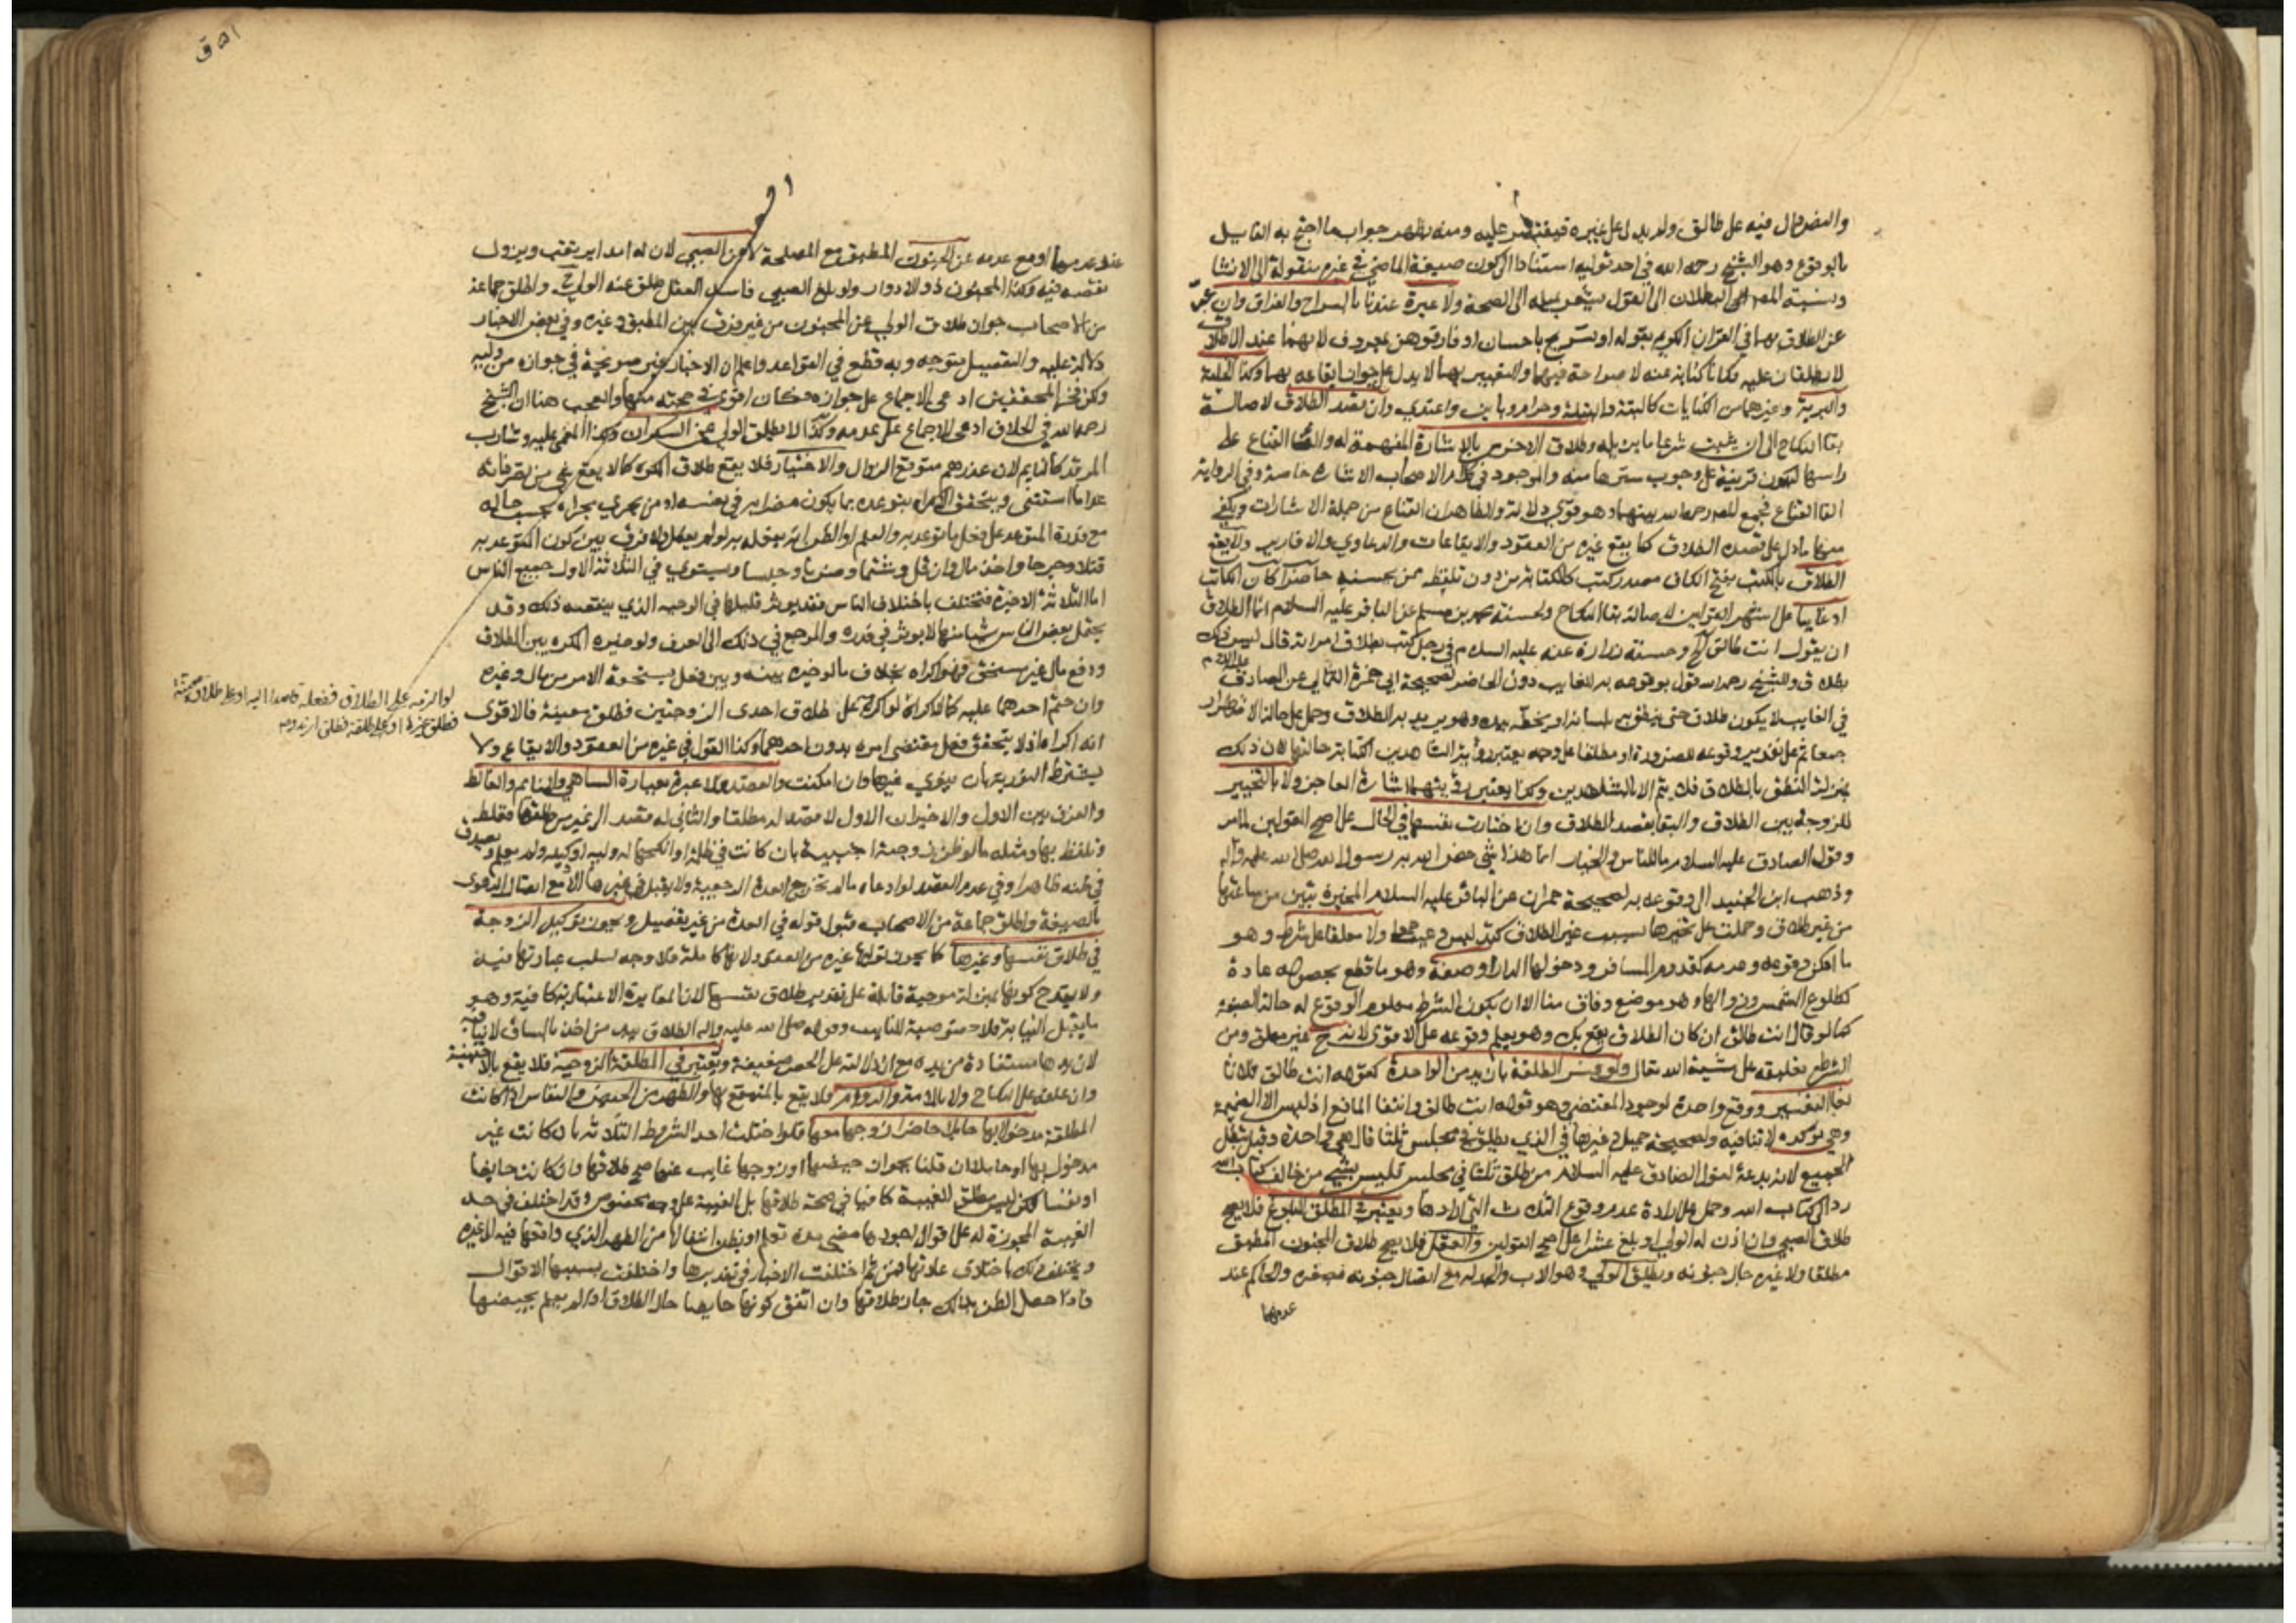 والنص دال فيه على طالق ولا يدل على غيره فيقتصر عليه ومنه يظهر جواب ما احتج به القايل
بالوقوع وهو الشيخ رحمه الله في احد قوليه استنادا الى كون صيغة الماضي في غيره منقولة الى الانشا
ونسبة المص البطلان الى القول يشعر بميله الى الصحة ولا عبرة عندنا بالسراح والفراق وان عبر
عن الطلاق بهما في القران الكريم بقوله او تسريح باحسان او فارقوهن بمعروف لانهما عند الاطلاق
لا يطلقان عليه فكانا كناية عنه لا صراحة فيهما والتعبير بهما لا يدل على جواز ايقاعه بهما وكذا الخلية
والبرية وغيرهما من الكنايات كالبتة والبتلة وحرام وباين واعتدي وان قصد الطلاق لاصالة
بقا النكاح الى ان يثبت شرعا ما يزيله وطلاق الاخرس بالاشارة المفهمة له والقا القناع على
راسها ليكون قرينة على وجوب سترها منه والموجود في كلام الاصحاب الاشارة خاصة وفي الرواية
القا القناع فجمع المص رحمه الله بينهما وهو قوي دلالة والظاهر ان القناع من جملة الاشارات ويكفي
منها ما دل على قصده الطلاق كما يقع غيره من العقود والايقاعات والدعاوي والاقارير ولا يقع
الطلاق بالكتب بفتح الكاف مصدر كتب كالكتابة من دون تلفظ ممن يحسنه حاضرا كان الكاتب
او غايبا على اشهر القولين لاصالة بقا النكاح ولحسنة محمد بن مسلم عن الباقر عليه السلام انما الطلاق
ان يقول انت طالق الخ وحسنة زرارة عنه عليه السلام في رجل كتب بطلاق امراته قال ليس ذلك
بطلاق وللشيخ رحمه الله قول بوقوعه به للغايب دون الحاضر لصحيحة ابي حمزة الثمالي عن الصادق عليه السلام
في الغايب لا يكون طلاق حتى ينطق به بلسانه او يخطه بيده وهو يريد به الطلاق وحمل على حالة الاضطرار
جمعا ثم على تقدير وقوعه للضرورة او مطلقا على وجه يعتبر رؤية الشاهدين الكتابة حالتها لان ذلك
بمنزلة النطق بالطلاق فلا يتم الا بالشاهدين وكذا يعتبر رؤيتهما اشارة العاجز ولا بالتخيير
للزوجة بين الطلاق والبقا بقصد الطلاق وان اختارت نفسها في الحال على اصح القولين لما مر
وقول الصادق عليه السلام ما للناس والخيار انما هذا شي خص الله به رسول الله صلى الله عليه وآله
وذهب ابن الجنيد الى وقوعه به لصحيحة حمران عن الباقر عليه السلام المخيرة تبين من ساعتها
من غير طلاق وحملت على تخييرها بسبب غير الطلاق كتدليس وعيب جمعا ولا معلقا على شرط وهو
ما امكن وقوعه وعدمه كقدوم المسافر ودخولها الدار او صفة وهو ما قطع بحصوله عادة
كطلوع الشمس وزوالها وهو موضع وفاق منا الا ان يكون الشرط معلوم الوقوع له حالة الصيغة
كما لو قال انت طالق ان كان الطلاق يقع بك وهو يعلم وقوعه على الاقوى لانه ح غير معلق ومن
الشرط تعليقه على مشية الله تعالى ولو فسر الطلقة بازيد من الواحدة كقوله انت طالق ثلاثا
لغا التفسير ووقع واحدة لوجود المقتضي وهو قوله انت طالق وانتفا المانع اذ ليس الا الضميمة
وهي توكده لا تنافيه ولصحيحة جميل وغيرها في الذي يطلق في مجلس ثلثا قال هي واحدة وقيل يبطل
الجميع لانه بدعة لقول الصادق عليه السلام من طلق ثلثا في مجلس فليس بشي من خالف كتاب الله
رد الى كتاب الله وحمل على ارادة عدم وقوع الثلاث التي ارادها ويعتبر في المطلق البلوغ فلا يصح
طلاق الصبي وان اذن له الولي او بلغ عشرا على اصح القولين والعقل فلا يصح طلاق المجنون المطبق
مطلقا ولا غيره حال جنونه ويطلق الولي وهو الاب والجد له مع اتصال جنونه بصغره والحاكم عند
عدمهما
عند عدمهما او مع عدمه عن المجنون المطبق مع المصلحة لا عن الصبي لان له امدا يرتقب ويزول
نقصه فيه وكذا المجنون ذو الادوار ولو بلغ الصبي فاسد العقل طلق عنه الولي ح واطلق جماعة
من الاصحاب جواز طلاق الولي عن المجنون من غير فرق بين المطبق وغيره وفي بعض الاخبار
دلالة عليه والتفصيل متوجه وبه قطع في القواعد واعلم ان الاخبار غير صريحة في جوازه من وليه
ولكن فخر المحققين ادعى الاجماع على جوازه فكان اقوى في حجيته منها والعجب هنا ان الشيخ
رحمه الله في الخلاف ادعى الاجماع على عدمه وكذا لا يطلق الولي عن السكران وكذا المغمى عليه وشارب
المرقد كالنايم لان عذرهم متوقع الزوال والاختيار فلا يقع طلاق المكره كما لا يقع شي من تصرفاته
عدا ما استثنى ويتحقق الاكراه بتوعده بما يكون مضرا به في نفسه او من يجري مجراه بحسب حاله
مع قدرة المتوعد على فعل ما توعد به والعلم او الظن انه يفعله به لو لم يفعل ولا فرق بين كون المتوعد به
قتلا وجرحا واخذ مال وان قل وشتما وضربا وحبسا ويستوي في الثلاثة الاول جميع الناس
اما الثلاثة الاخيرة فتختلف باختلاف الناس فقد يوثر قليلها في الوجيه الذي ينقصه ذلك وقد
يحتمل بعض الناس شيا منها لا يوثر في قدره والمرجع في ذلك الى العرف ولو خيره المكره بين الطلاق
ودفع مال غير مستحق فهو اكراه بخلاف ما لو خيره بينه وبين فعل يستحقه الامر من مال وغيره
وان حتم احدهما عليه كما لا اكراه لو اكرهه على طلاق احدى الزوجتين فطلق معينة فالاقوى
انه اكراه اذ لا يتحقق فعل مقتضى امره بدون احدهما وكذا القول في غيره من العقود والايقاع ولا
يشترط التورية بان ينوي غيرها وان امكنت والقصد فلا عبرة بعبارة الساهي والنايم والغالط
والفرق بين الاول والاخيران الاول لا قصد له مطلقا والثاني له قصد الى غير من طلقها فغلط
وتلفظ بها ومثله ما لو ظن زوجته اجنبية بان كانت في ظلمة او انكحها له وليه او وكيله ولم يعلم ويصدق
في ظنه ظاهرا وفي عدم القصد لو ادعاه ما لم تخرج العدة الرجعية ولا يقبل في غيرها الا مع اتصال الدعوى
بالصيغة واطلق جماعة من الاصحاب قبول قوله في العدة من غير تفصيل ويجوز توكيل الزوجة
في طلاق نفسها وغيرها كما يجوز توليها غيره من العقود لانها كاملة فلا وجه لسلب عبارتها فيه
ولا يقدح كونها بمنزلة موجبة قابلة على تقدير طلاق نفسها لان المغايرة الاعتبارية كافية وهو
مما يقبل النيابة فلا خصوصية للنايب وقوله صلى الله عليه وآله الطلاق بيد من اخذ بالساق لا ينافيه
لان يدها مستفادة من يده مع ان دلالته على الحصر ضعيفة ويعتبر في المطلقة الزوجية فلا يقع بالاجنبية
وان علقه على النكاح ولا بالامة والدوام فلا يقع بالمتمتع بها والطهر من الحيض والنفاس اذا كانت
المطلقة مدخولا بها حايلا حاضرا زوجها معها فلو اختلت احد الشروط الثلاثة بان كانت غير
مدخول بها او حاملا ان قلنا بجواز حيضها او زوجها غايب عنها صح طلاقها وان كانت حايضا
او نفسا لكن ليس مطلق الغيبة كافيا في صحة طلاقها بل الغيبة على وجه مخصوص وقد اختلف في حد
الغيبة المجوزة له على اقوال اجودها مضي مدة تعلم او يظن انتقالها من الطهر الذي واقعها فيه الى غيره
ويختلف ذلك باختلاف عادتها فمن ثم اختلفت الاخبار في تقديرها واختلفت بسببها الاقوال
فاذا حصل الظن بذلك جاز طلاقها وان اتفق كونها حايضا حال الطلاق اذا لم يعلم بحيضها
لو الزمه على الطلاق ففعله قاصدا اليه او على طلاق معينة
فطلق غيرها او على طلقة فطلق ازيد